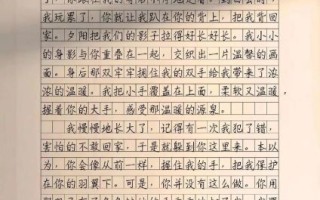 我玩累了，你就让我趴在你的背上，把我背回
家。夕阳把我们的影子拉得好长好长。我小小
的身影与你重叠在一起，交织出一片温馨的画
面。身后那双牢牢托住我的双手给我带来了浓
浓的温暖。我把小手覆盖在上面，柔软又温暖
握着你的大手，感受那温暖的源泉。
我慢慢地长大了，记得有一次我犯了错，
害怕的不敢回家，于是就躲到你这里来。本以
为，你会像从前一样，握住我的手，把我保护
在你的羽翼下。可是，你并没有这么做。你用